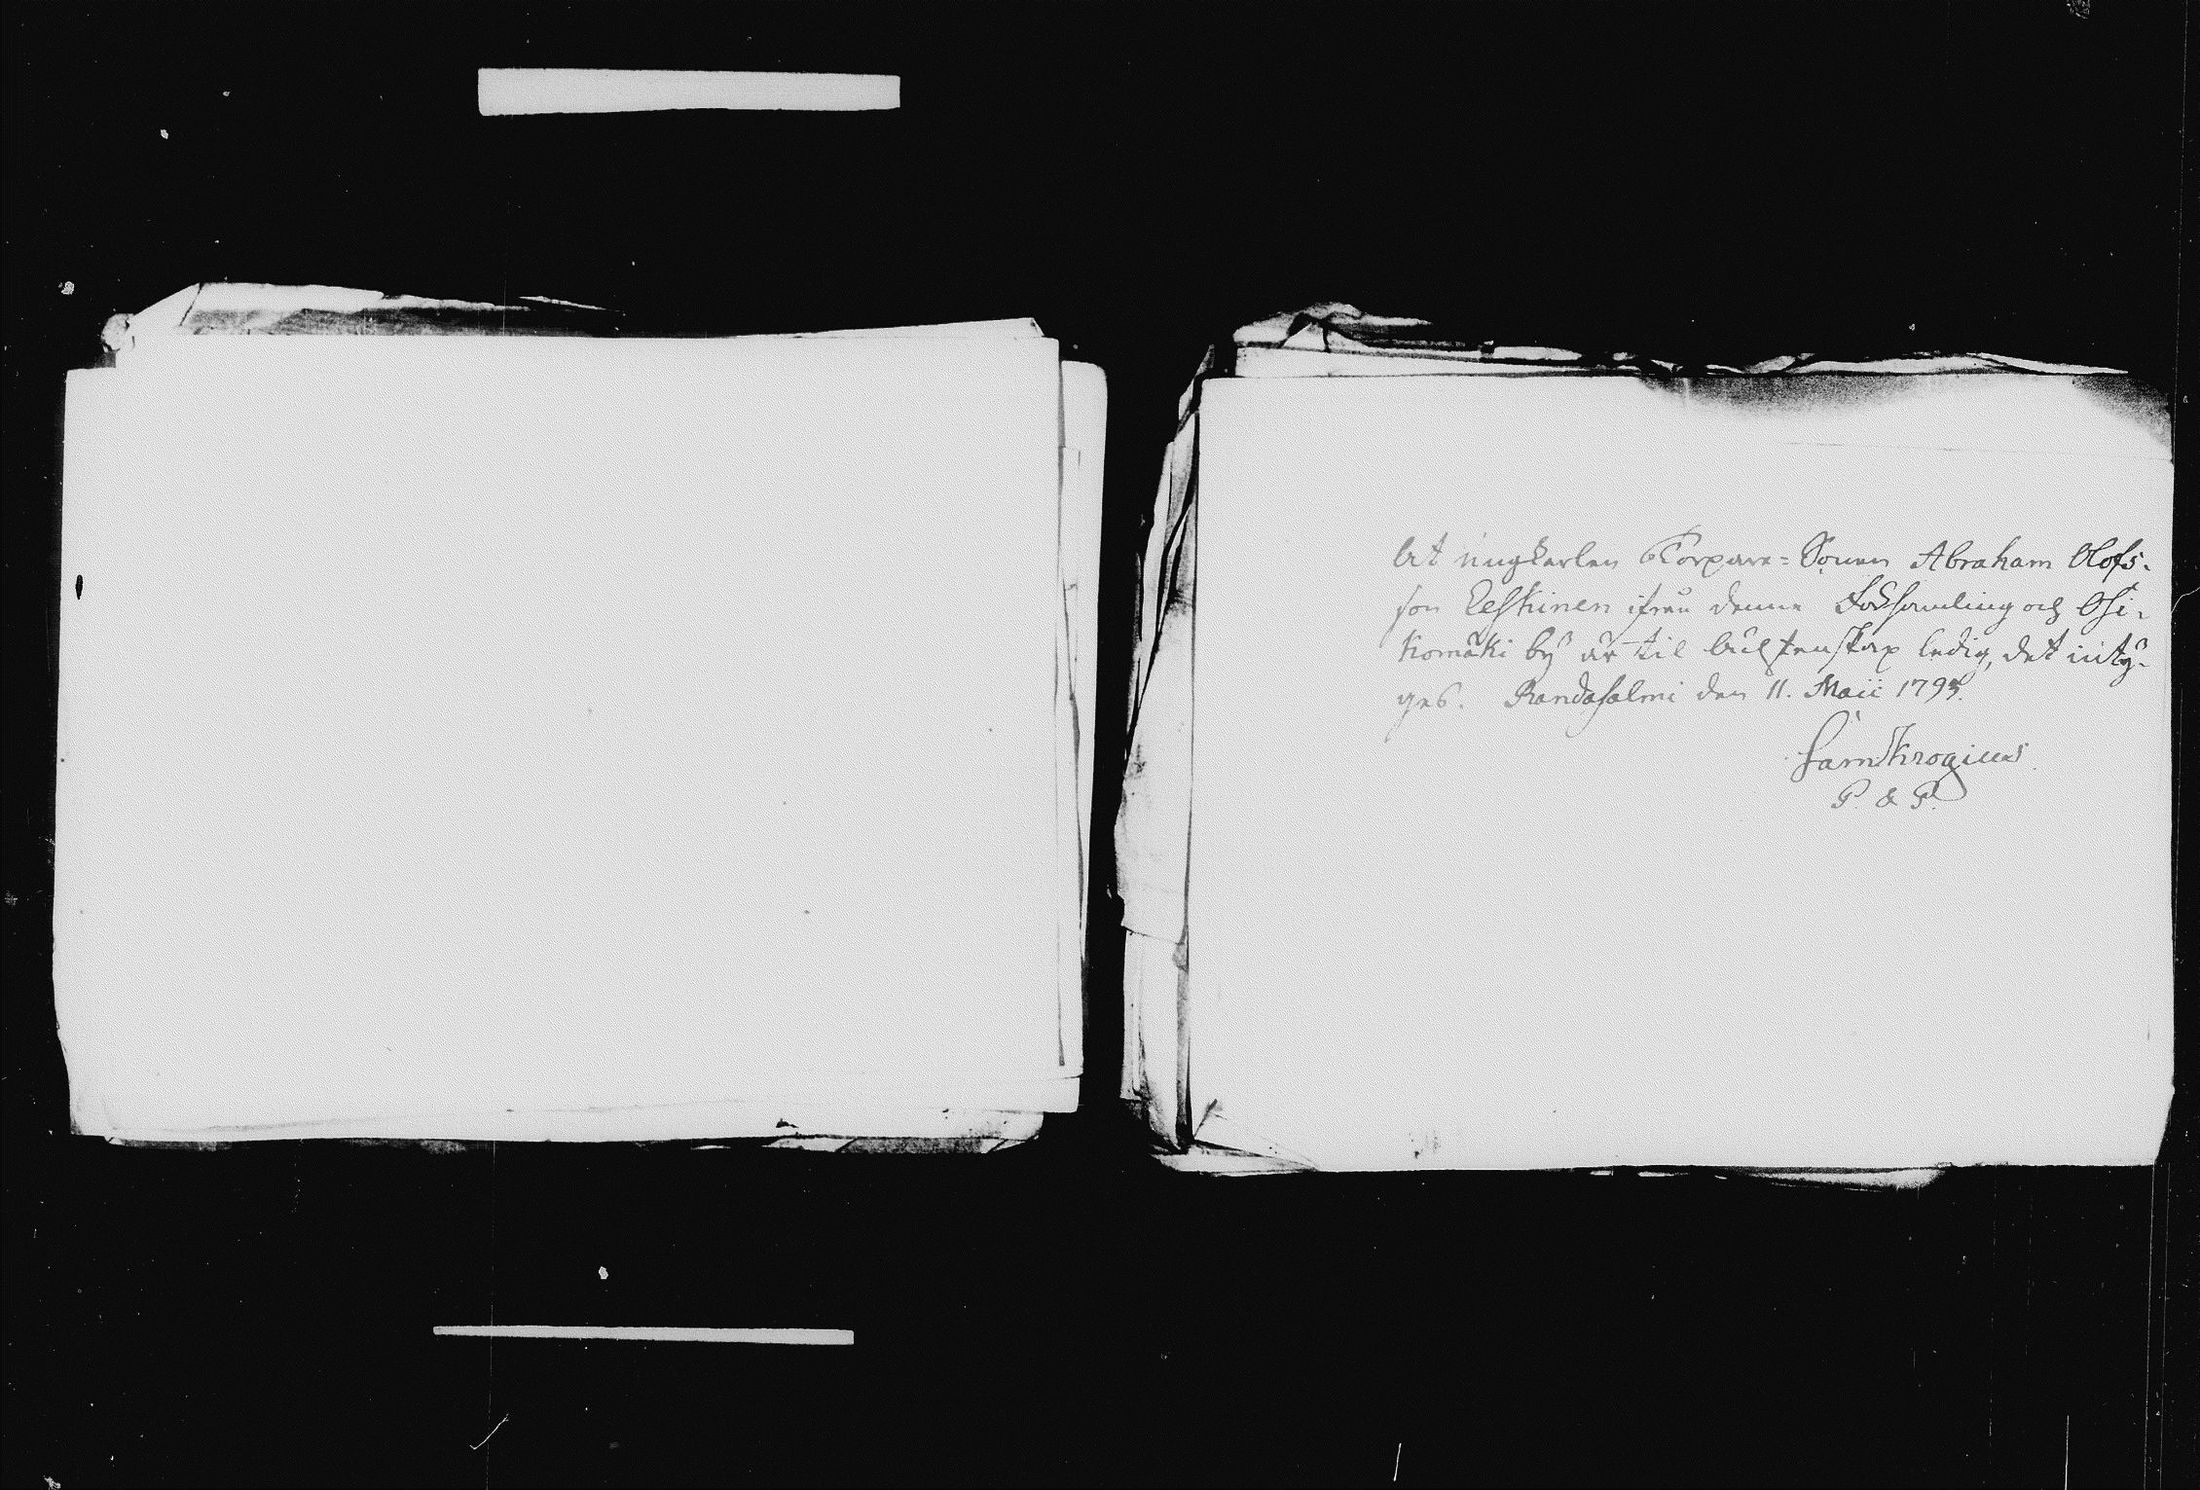 At ungkarlen Torpare=Sonen Abraham Olofs-
son Eeskinen ifrån denna Församling och Osi-
komäki bÿ är til äcktenskap ledig, det intÿ-
gas. Randasalmi den 11. Maii 1795.
Sam Krogius
P. & P.